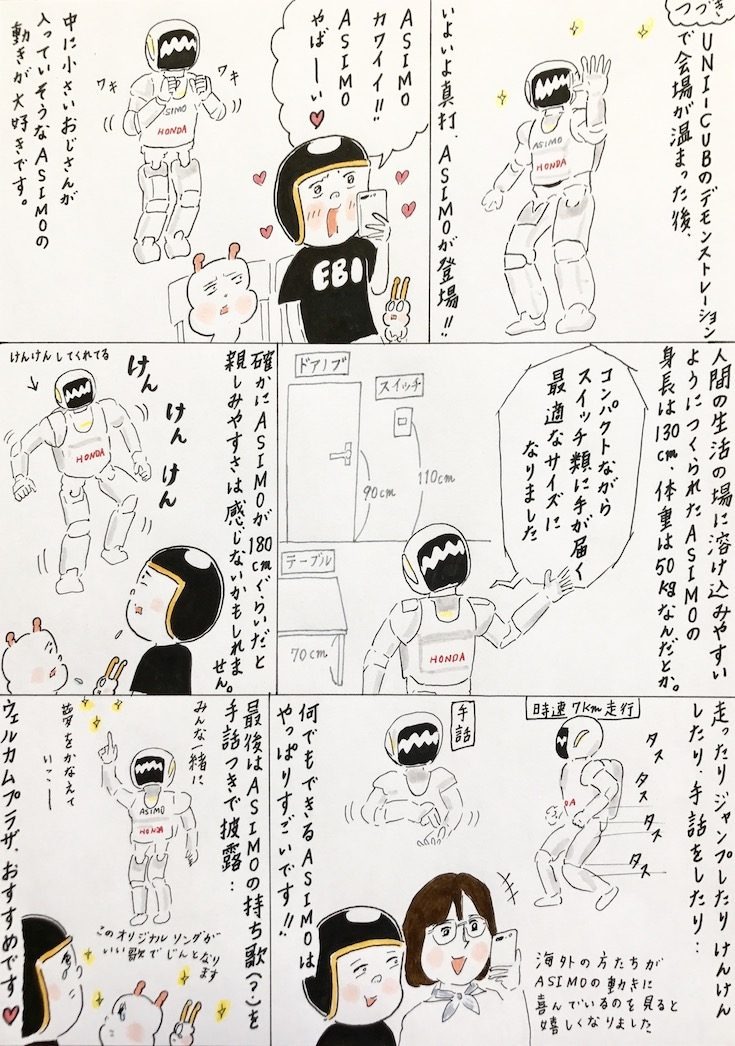 つづき
UNI-CUBのデモンストレーション
で会場が温まった後、
いよいよ真打、ASIMOが登場!!
ASIMO
HONDA
ASIMO
カワイイ!!
ASIMO
やばーーい
EBI
ワキ
ワキ
ASIMO
HONDA
中に小さいおじさんが
入っていそうなASIMOの
動きが大好きです。
人間の生活の場に溶け込みやすい
ようにつくられたASIMOの
身長は130cm、体重は50kgなんだとか。
コンパクトながら
スイッチ類に手が届く
最適なサイズに
なりました
ドアノブ
スイッチ
90cm
110cm
テーブル
70cm
HONDA
確かにASIMOが180cmぐらいだと
親しみやすさは感じないかもしれま
せん。
けんけんしてくれてる
けん
けん
けん
HONDA
走ったりジャンプしたりけんけん
したり、手話をしたり…
時速7km走行
タス
タス
タス
タス
手話
何でもできるASIMOは
やっぱりすごいです!!
海外の方たちが
ASIMOの動きに
喜んでいるのを見ると
嬉しくなりました
最後はASIMOの持ち歌(?)を
手話つきで披露…
みんな一緒に
夢をかなえて
いこーー
ASIMO
HONDA
このオリジナルソングが
いい歌でじんとなり
ます
ウェルカムプラザ、おすすめです♥